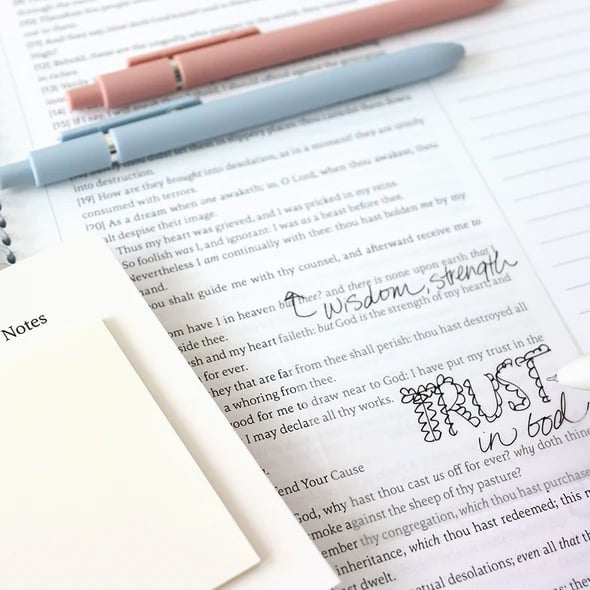 not to them.
in riches.
[13] Verily
[14]
[15] If I say, I will speak
into destruction.
[19] How are they brought into desolation, as in a moment! they are utterly
consumed with terrors.
[20] As a dream when one awaketh; so, O Lord, when thou awakest, thou
alt despise their image.
Thus my heart was grieved, and I was pricked in my reins.
So foolish was I, and ignorant: I was as a beast before thee.
Nevertheless I am continually with thee: thou hast holden me by my
hand.
ou shalt guide me with thy counsel, and afterward receive me to
wisdom, strength
om have I in heaven but thee? and there is none upon earth that I
side thee.
sh and my heart faileth: but God is the strength of my heart, and
for ever.
hey that are far from thee shall perish: thou hast destroyed all
a whoring from thee.
ood for me to draw near to God: I have put my trust in the
I may declare all thy works.
TRUST
in God
end Your Cause
God, why hast thou cast us off for ever? why doth thine
moke against the sheep of thy pasture?
ember thy congregation, which thou hast purchase
inheritance, which thou hast redeemed; this m
st dwelt.
etual desolations; even all that th
Notes